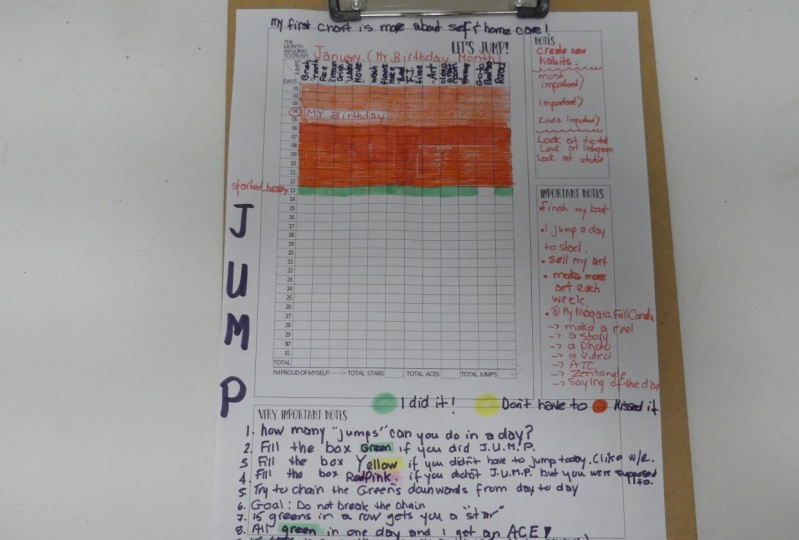 My first chart is more about self & home care!
THE MONTH
LET'S JUMP!
January (My Birthday Month)
DAYS
01
02
03
04 MY Birthday
05
06
07
08
09
10
11
12
started today 13
14
15
16
17
18
19
20
21
22
23
24
25
26
27
28
29
30
31
TOTAL:
I'M PROUD OF MYSELF! TOTAL STARS TOTAL ACES TOTAL JUMPS
JUMP
NOTES
create new
habits.
most
important)
important)
kinda important)
Look at tiktok
Look at instagram
Look at utube
IMPORTANT NOTES
• Finish my book
• 1 jump a day
to start.
• Sell my art
• make more
art each
week.
• @ My Niagara Fall
-> make a reel
-> a story
-> a photo
-> a video
-> ATC
-> Zentangle
-> Saying of the day
I did it! Don't have to Missed it
VERY IMPORTANT NOTES
1. how many "jumps" can you do in a day?
2. Fill the box Green if you did J.U.M.P.
3 Fill the box Yellow if you didn't have to jump today. (like w/e.
4. Fill the box Red/Pink. if you didn't J.U.M.P. but you were supposed to.
5 Try to chain the Greens downwards from day to day
6. Goal: Do not break the chain
7. 15 greens in a row gets you a "star"
8. All green in one day and I get an ACE!